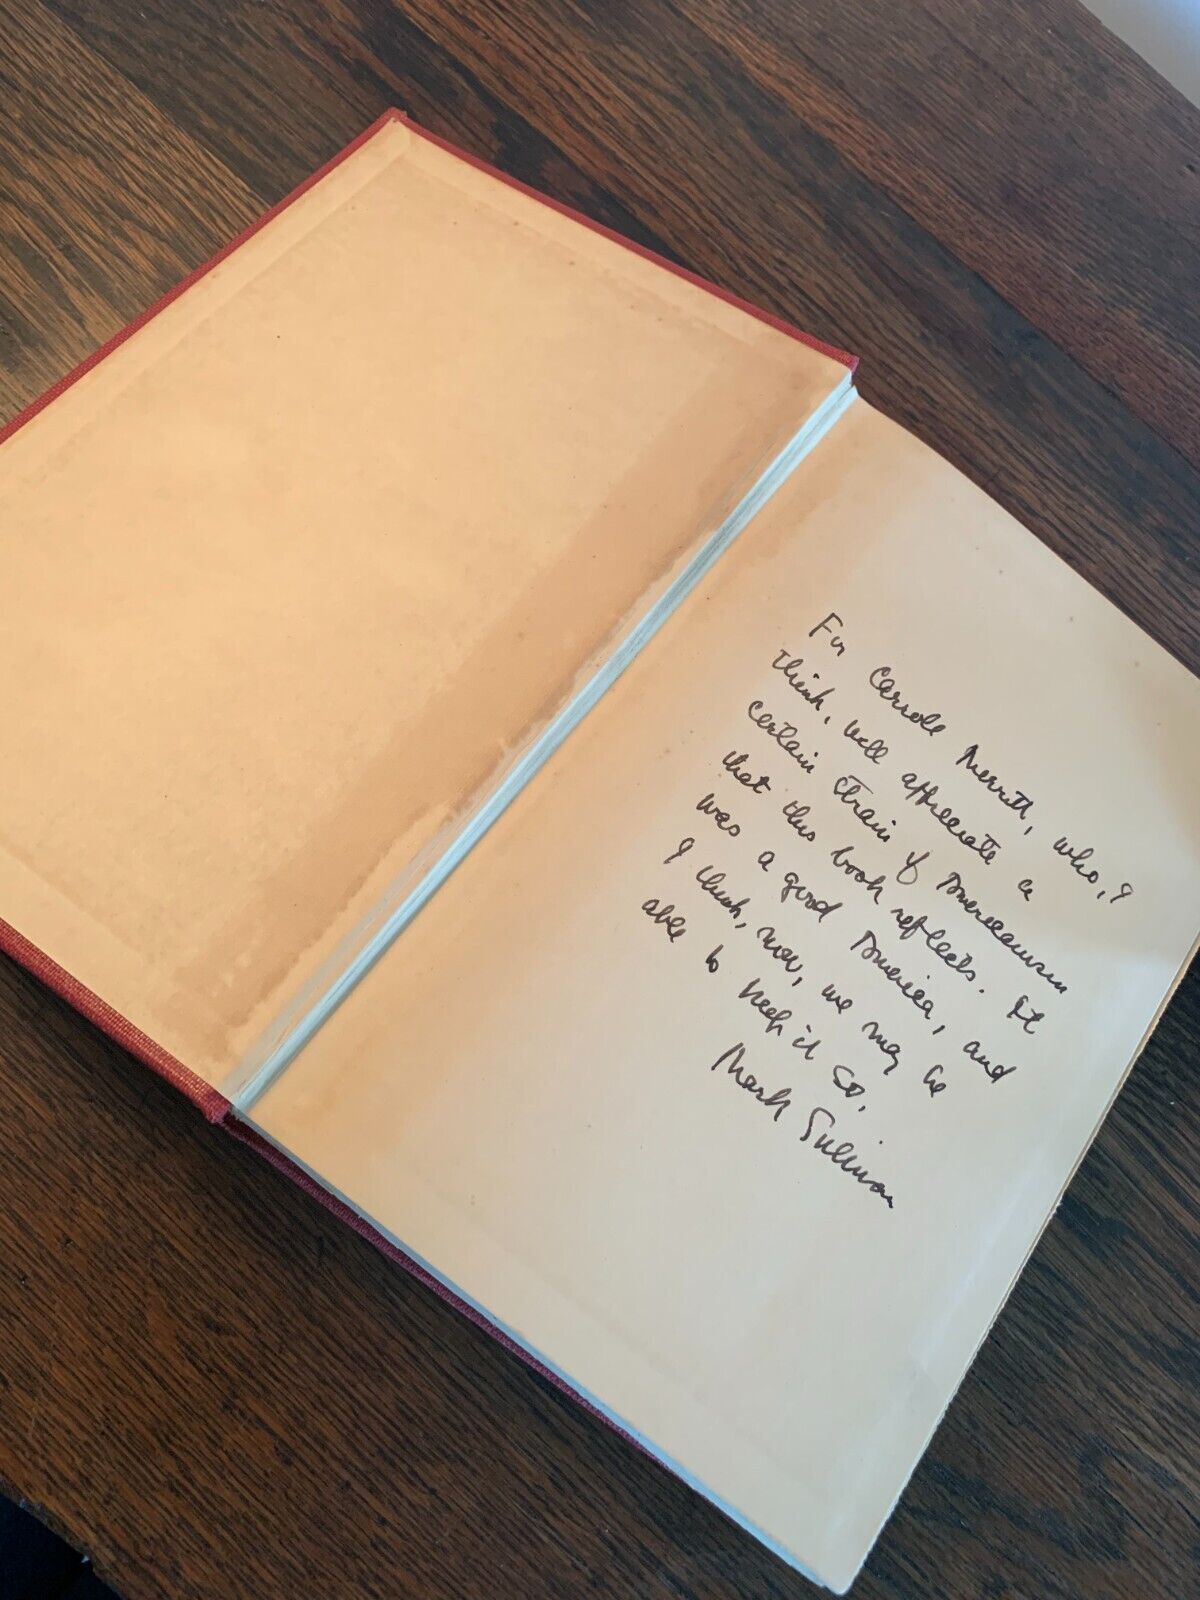 For Carrole Merritt, who, I
think, will appreciate a
certain strain of Americanism
that this book reflects. It
was a good America, and
I think, now, we may be
able to keep it so.
Mark Sullivan